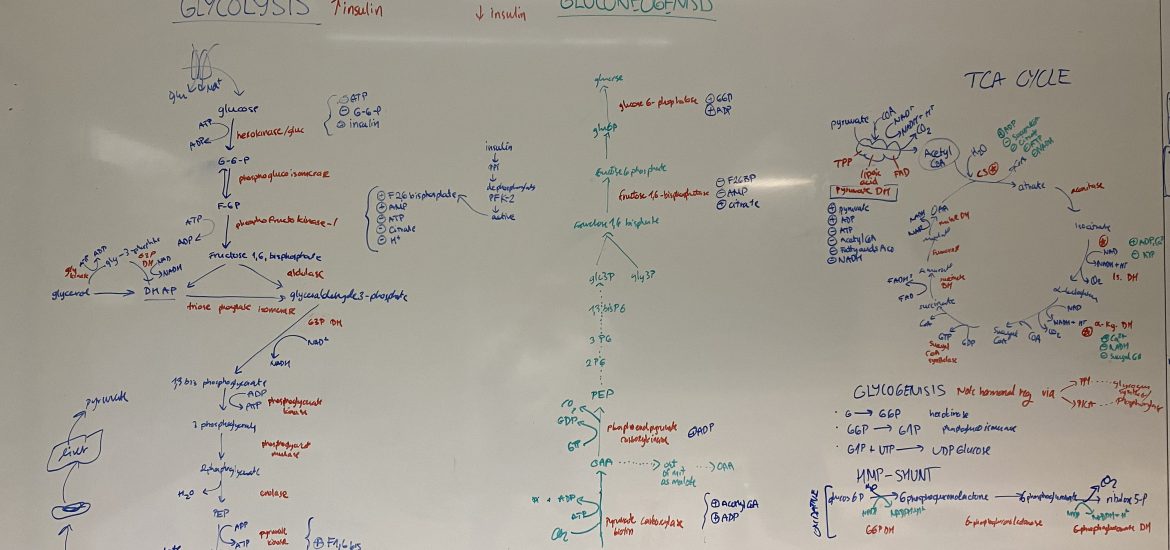 GLYCOLYSIS ↑insulin
↓ insulin
GLUCONEOGENISIS
glucose
ATP
hexokinase/gluc
G-6-P
phosphoglucoisomerase
F-6P
ATP
ADP
phosphofructokinase-1
Fructose 1,6, bisphosphate
aldolase
glycerol
gly-3-phosphate
G3P
DH
NAD
NADH
DHAP
glyceraldehyde 3-phosphate
triose phosphate isomerase
G3P DH
NAD+
NADH
1,3 bis phosphoglycerate
ADP
ATP
phosphoglycerate
kinase
3 phosphoglycerate
phosphoglycerate
mutase
2 phosphoglycerate
H₂O
enolase
PEP
ADP
ATP
pyruvate
kinase
⊕ F1,6 bis
pyruvate
liver
⊖ G-6-P
⊖ insulin
⊕ F26 bisphosphate
⊕ AMP
⊖ ATP
⊖ Citrate
⊖ H⁺
insulin
PP1
dephosphorylate
PFK-2
active
glucose
glucose 6-phosphatase
⊕ G6P
⊕ ADP
gluc6p
fructose 6 phosphate
fructose 1,6-bisphosphatase
⊖ F26BP
⊖ AMP
⊕ citrate
Fructose 1,6 bisphate
glc3P
gly3P
1,3 bisPG
3 PG
2 PG
PEP
CO₂
GDP
GTP
phosphoenolpyruvate
carboxykinase
⊖ADP
OAA
out
of mit
as malate
OAA
Pi + ADP
ATP
CO₂
pyruvate carboxylase
biotin
⊕ Acetyl CoA
⊖ ADP
TCA CYCLE
pyruvate
COA
NAD⁺
NADH + H⁺
CO₂
TPP
lipoic
acid
FAD
Acetyl
CoA
H₂O
CS
citrate
aconitase
Pyruvate DH
⊕ pyruvate
⊕ ADP
⊖ ATP
⊖ Acetyl CoA
⊖ NADH
OAA
malate DH
isocitrate
NAD
NADH + H⁺
CO₂
Is. DH
⊖ ATP
α-kg. DH
⊕ Ca²⁺
⊖ NADH
NAD
NADH + H⁺
CO₂
COA
succinyl
CoA
GTP
GDP
succinyl
CoA
synthetase
succinate
succinate
DH
FAD
FADH²
GLYCOGENISIS Note hormonal reg via
PP1
PKA
· G → G6P hexokinase
· G6P → G1P phosphoglucoisomerase
G1P + UTP → UDP Glucose
HMP-SHUNT
OXIDATIVE
glucos 6P
G6P DH
6-phosphogluconolactone
6-phosphogluconate
CO₂
ribulose 5-P
6-phosphogluconate DH